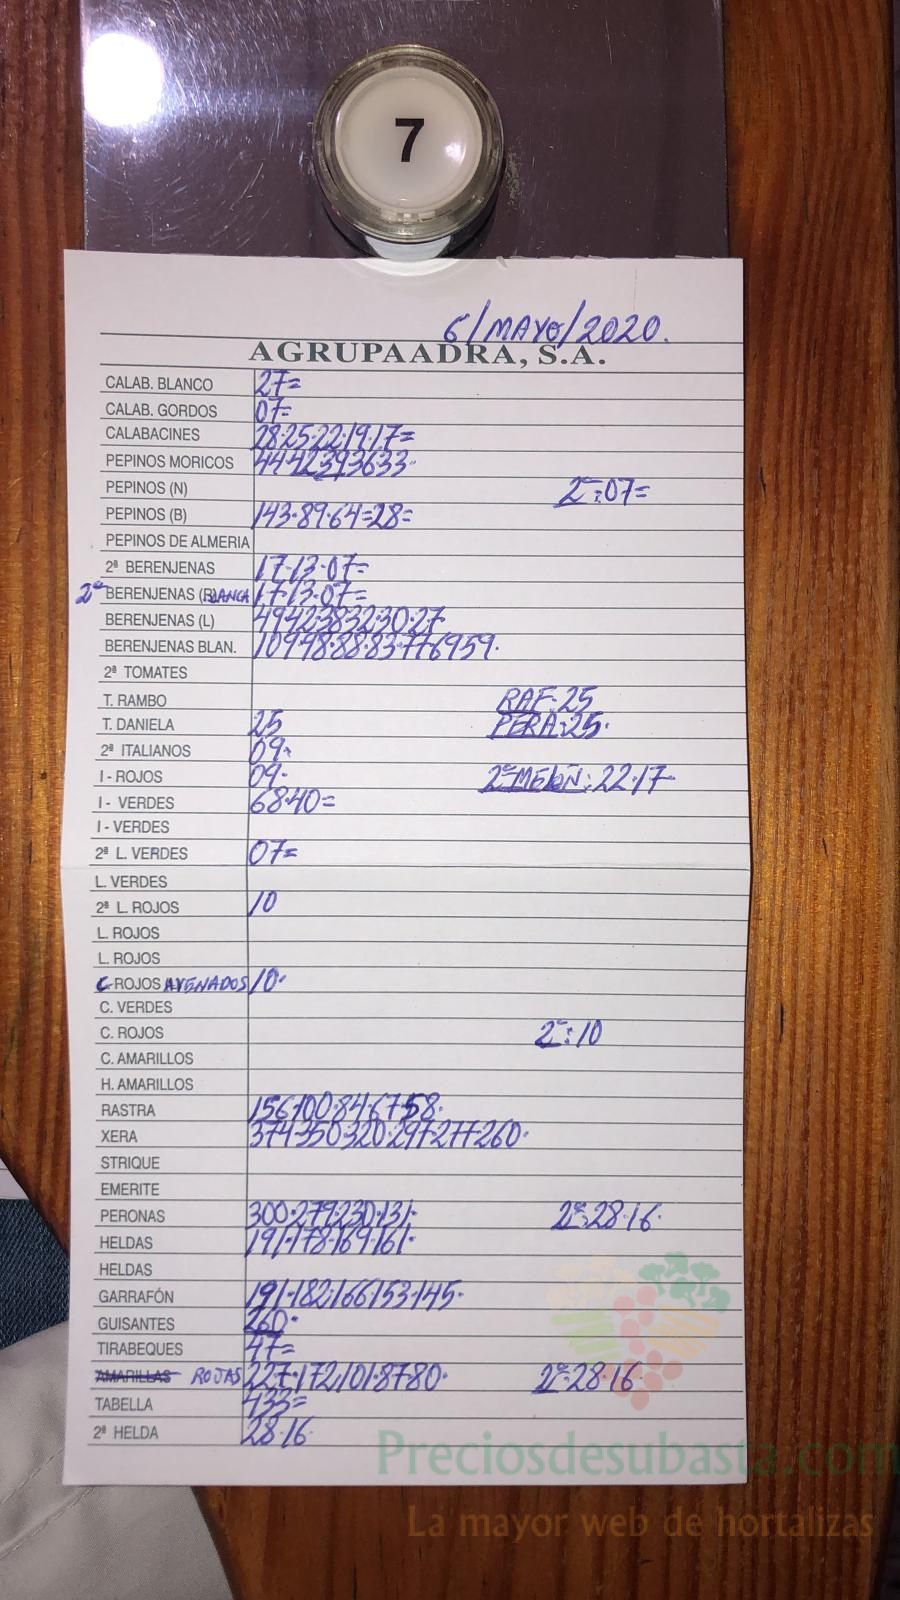 7
6/MAYO/2020.
AGRUPAADRA, S.A.
CALAB. BLANCO 27=
CALAB. GORDOS 07=
CALABACINES 28·25·22·19·17=
PEPINOS MORICOS 44·42·39·36·33·
PEPINOS (N) 2ª:07=
PEPINOS (B) 143·89·64=28=
PEPINOS DE ALMERIA
2ª BERENJENAS 17·13·07=
2ª BERENJENAS (BLANCA 17·13·07=
BERENJENAS (L) 49·42·38·32·30·27·
BERENJENAS BLAN. 109·98·88·83·77·69·59·
2ª TOMATES
T. RAMBO RAF:25
T. DANIELA 25 PERA:25·
2ª ITALIANOS 09·
I - ROJOS 09· 2ª MELON: 22·17·
I - VERDES 68·40=
I - VERDES
2ª L. VERDES 07=
L. VERDES
2ª L. ROJOS 10
L. ROJOS
L. ROJOS
C ROJOS AVENADOS 10·
C. VERDES
C. ROJOS 2ª:10
C. AMARILLOS
H. AMARILLOS
RASTRA 156·100·84·67·58·
XERA 374·350·320·297·277·260·
STRIQUE
EMERITE
PERONAS 300·279·230·131· 2ª:28·16·
HELDAS 191·178·169·161·
HELDAS
GARRAFÓN 191·182·166·153·145·
GUISANTES 260·
TIRABEQUES 47=
AMARILLAS ROJAS 227·172·101·87·80· 2ª:28·16·
TABELLA 433=
2ª HELDA 28·16·
Preciosdesubasta.com
La mayor web de hortalizas